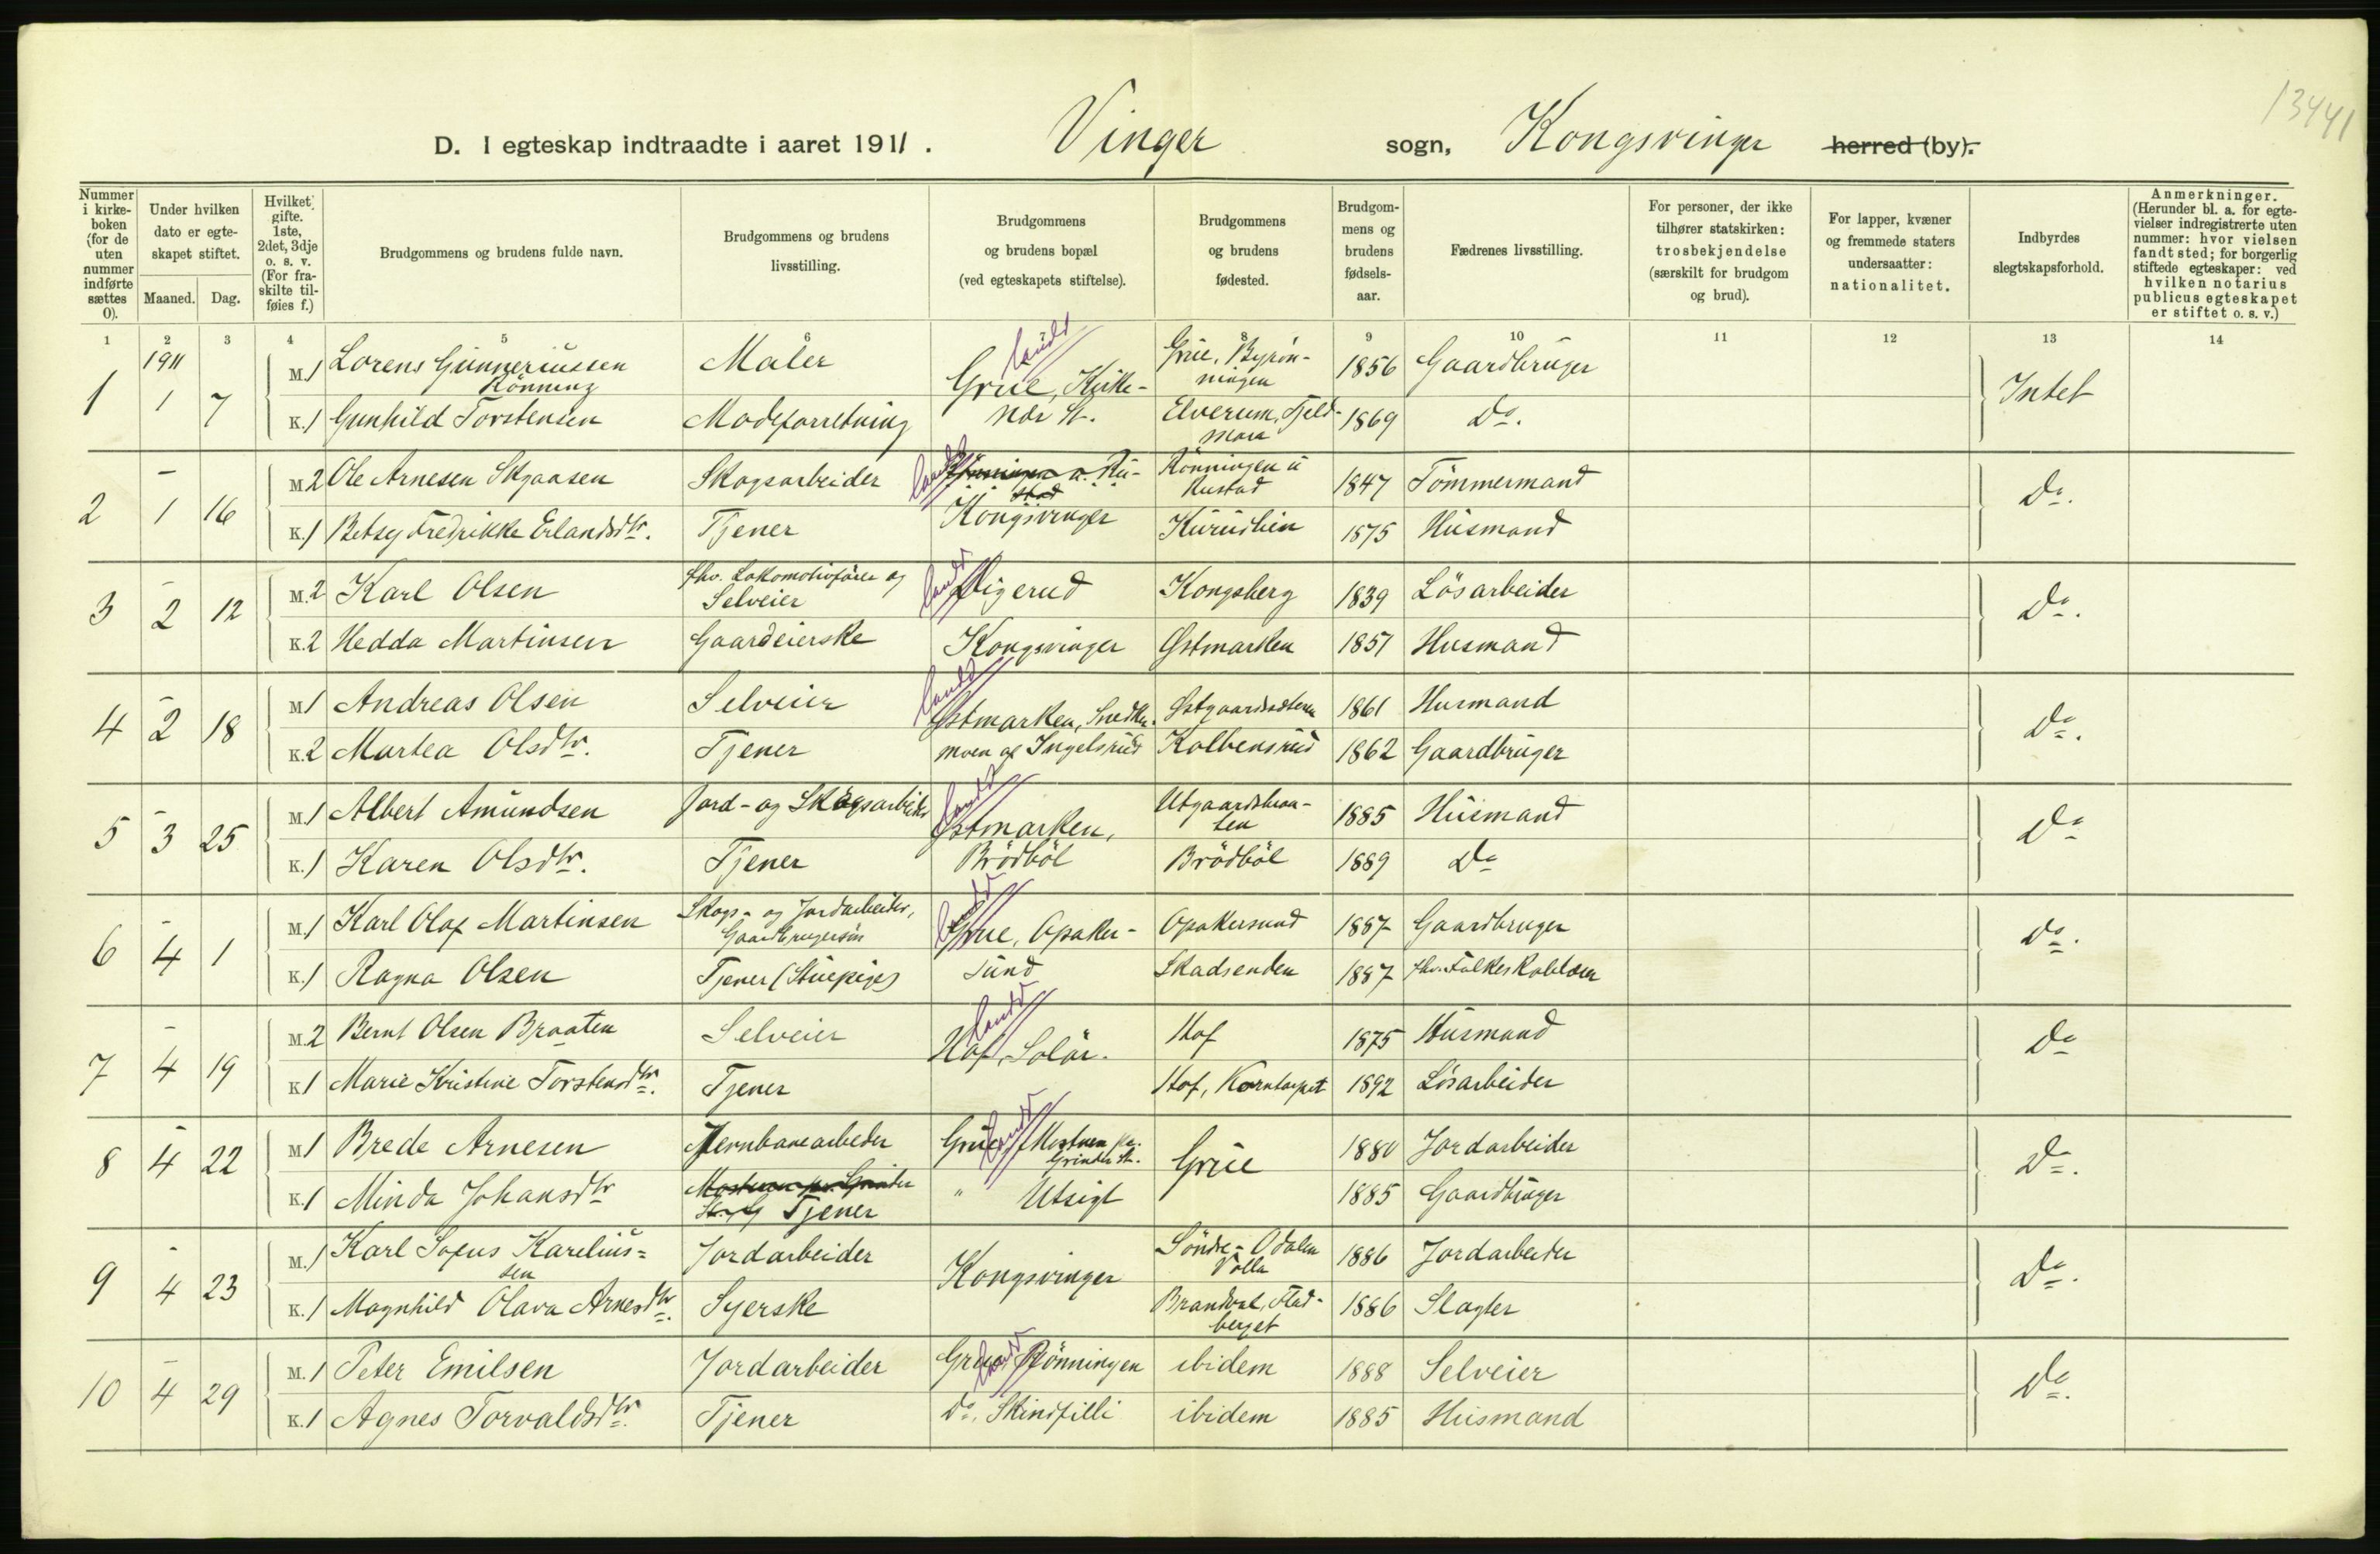 13441
D. I egteskap indtraadte i aaret 1911. Vinger sogn, Kongsvinger herred (by).
Nummer i kirke-boken (for de uten nummer indførte sættes 0).
Under hvilken dato er egte-skapet stiftet.
Maaned. Dag.
Hvilket gifte. 1ste, 2det, 3dje o. s. v. (For fra-skilte til-føies f.)
Brudgommens og brudens fulde navn.
Brudgommens og brudens livsstilling.
Brudgommens og brudens bopæl (ved egteskapets stiftelse).
Brudgommens og brudens fødested.
Brudgom-mens og brudens fødsels-aar.
Fædrenes livsstilling.
For personer, der ikke tilhører statskirken: trosbekjendelse (særskilt for brudgom og brud).
For lapper, kvæner og fremmede staters undersaatter: nationalitet.
Indbyrdes slegtskapsforhold.
Anmerkninger. (Herunder bl. a. for egte-vielser indregistrerte uten nummer: hvor vielsen fandt sted; for borgerlig stiftede egteskaper: ved hvilken notarius publicus egteskapet er stiftet o. s. v.)
1 2 3 4 5 6 7 8 9 10 11 12 13 14
1911
1 1 7 M. 1 Lorens Gunneriussen Rönning Maler Grue, Kirke- Grue, Byrön-ningen 1856 Gaardbruger Intet
K. 1 Gunhild Torstensen Modeforretning nær St. Elverum, Fjeld-mora 1869 Do.
2 1 16 M. 2 Ole Arnesen Skaasen Skogsarbeider Rönningen u. Ru-stad Rönningen u Rustad 1847 Tömmermand Do.
K. 1 Betsy Fredrikke Erlandsdtr. Tjener Kongsvinger 1875 Husmand
3 2 12 M. 2 Karl Olsen fhv. Lokomotivfører og Selveier Digerud Kongsberg 1839 Lösarbeider Do.
K. 2 Hedda Martinsen Gaardeierske Kongsvinger Østmarken 1851 Husmand
4 2 18 M. 1 Andreas Olsen Selveier Østmarken, Snedker- 1861 Husmand Do.
K. 2 Martea Olsdtr. Tjener moen af Ingelsrud Kolbensrud 1862 Gaardbruger
5 3 25 M. 1 Albert Amundsen Jord- og Skogsarbeider Østmarken, 1885 Husmand Do
K. 1 Karen Olsdtr. Tjener Brödböl Brödböl 1889 Do
6 4 1 M. 1 Karl Olaf Martinsen Skogs- og Jordarbeider, Gaardbrugersön Grue, Opaker- Opakersund 1887 Gaardbruger Do.
K. 1 Ragna Olsen Tjener (Stuepige) sund Skadsenden 1887
7 4 19 M. 2 Bernt Olsen Braaten Selveier Hof, Solör. Hof 1875 Husmand Do
K. 1 Marie Kristine Torstensdtr. Tjener Hof, Korntorpet 1892 Lösarbeider
8 4 22 M. 1 Brede Arnesen Jernbanearbeder Grue, Mostuen pr. Grinder St. Grue 1880 Jordarbeider Do.
K. 1 Minda Johansdtr Mostuen pr. Grinder St. Tjener " Utsigt 1885 Gaardbruger
9 4 23 M. 1 Karl Sofus Karelius=sen Jordarbeider Kongsvinger Söndre-Odalen 1886 Jordarbeider Do.
K. 1 Magnhild Olava Arnesdtr. Syerske Brandval, 1886 Slagter
10 4 29 M. 1 Peter Emilsen Jordarbeider Grue Rönningen ibidem 1888 Selveier Do.
K. 1 Agnes Torvaldsdtr. Tjener Do. Skindfilli ibidem 1885 Husmand